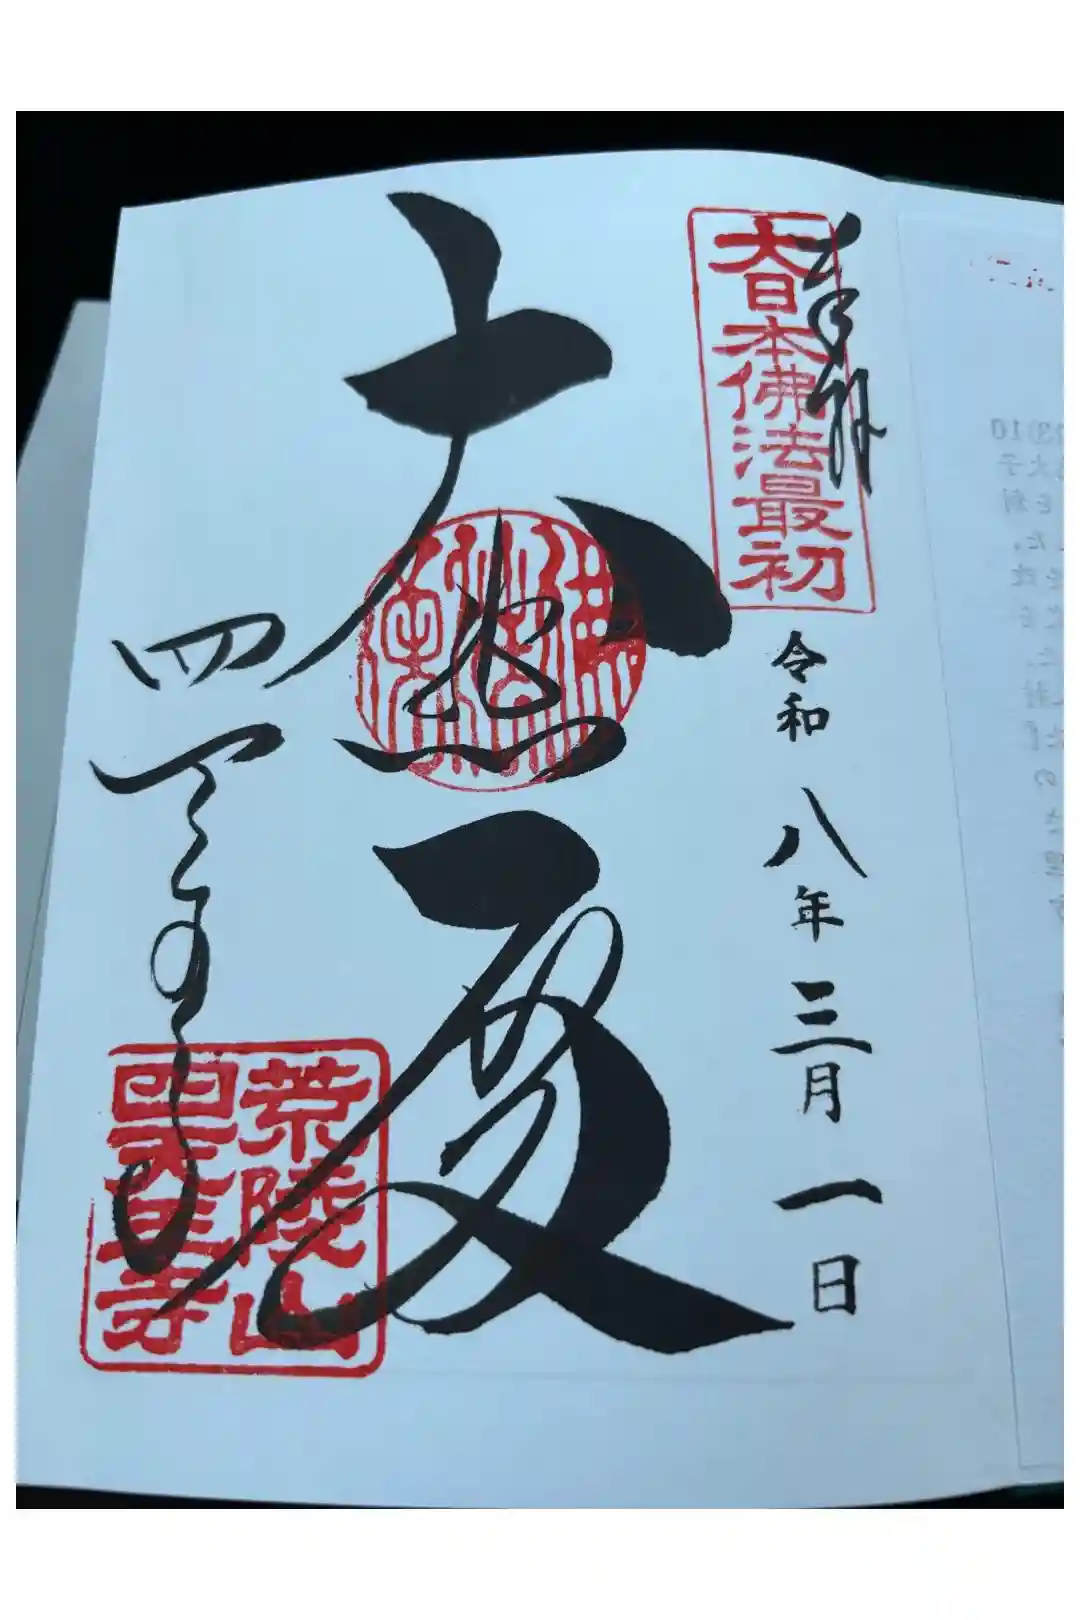 奉拝
大日本佛法最初
令和八年三月一日
大
四天王寺
荒陵山
四天王寺